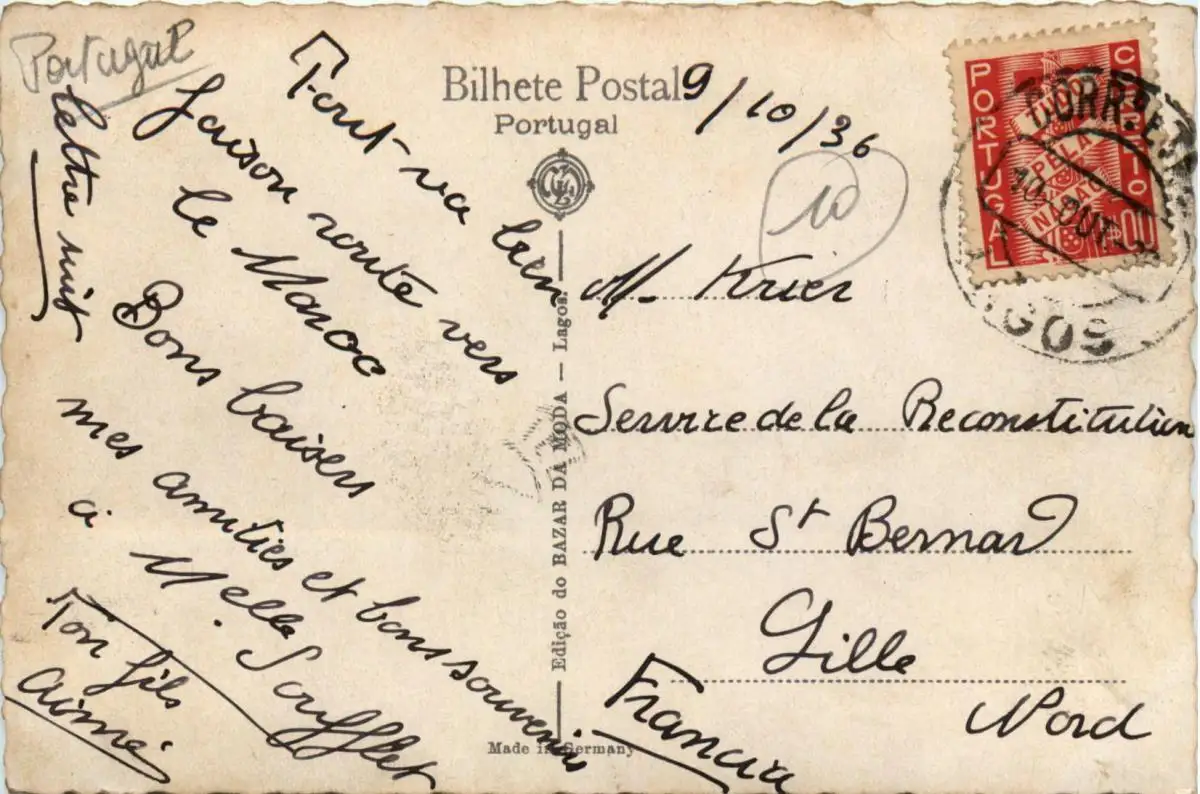 Portugal
Bilhete Postal
Portugal
9/10/36
10
Tout va bien
faison route vers
le Maroc
Bons baisers
mes amities et bons souvenirs
à Melle Soufflet
Ton fils
Aimé
lettre suit
M. Krier
Service de la Reconstitution
Rue St Bernard
Lille
Nord
Francia
Edição do BAZAR DA MODA — Lagos.
Made in Germany
PORTUGAL
CORREIO
TUDO
PELA
NAÇÃO
1$00
CORR.
10-OUT
LAGOS